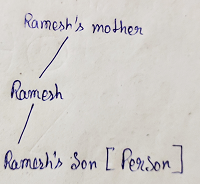 Ramesh's mother
Ramesh
Ramesh's Son [Person]